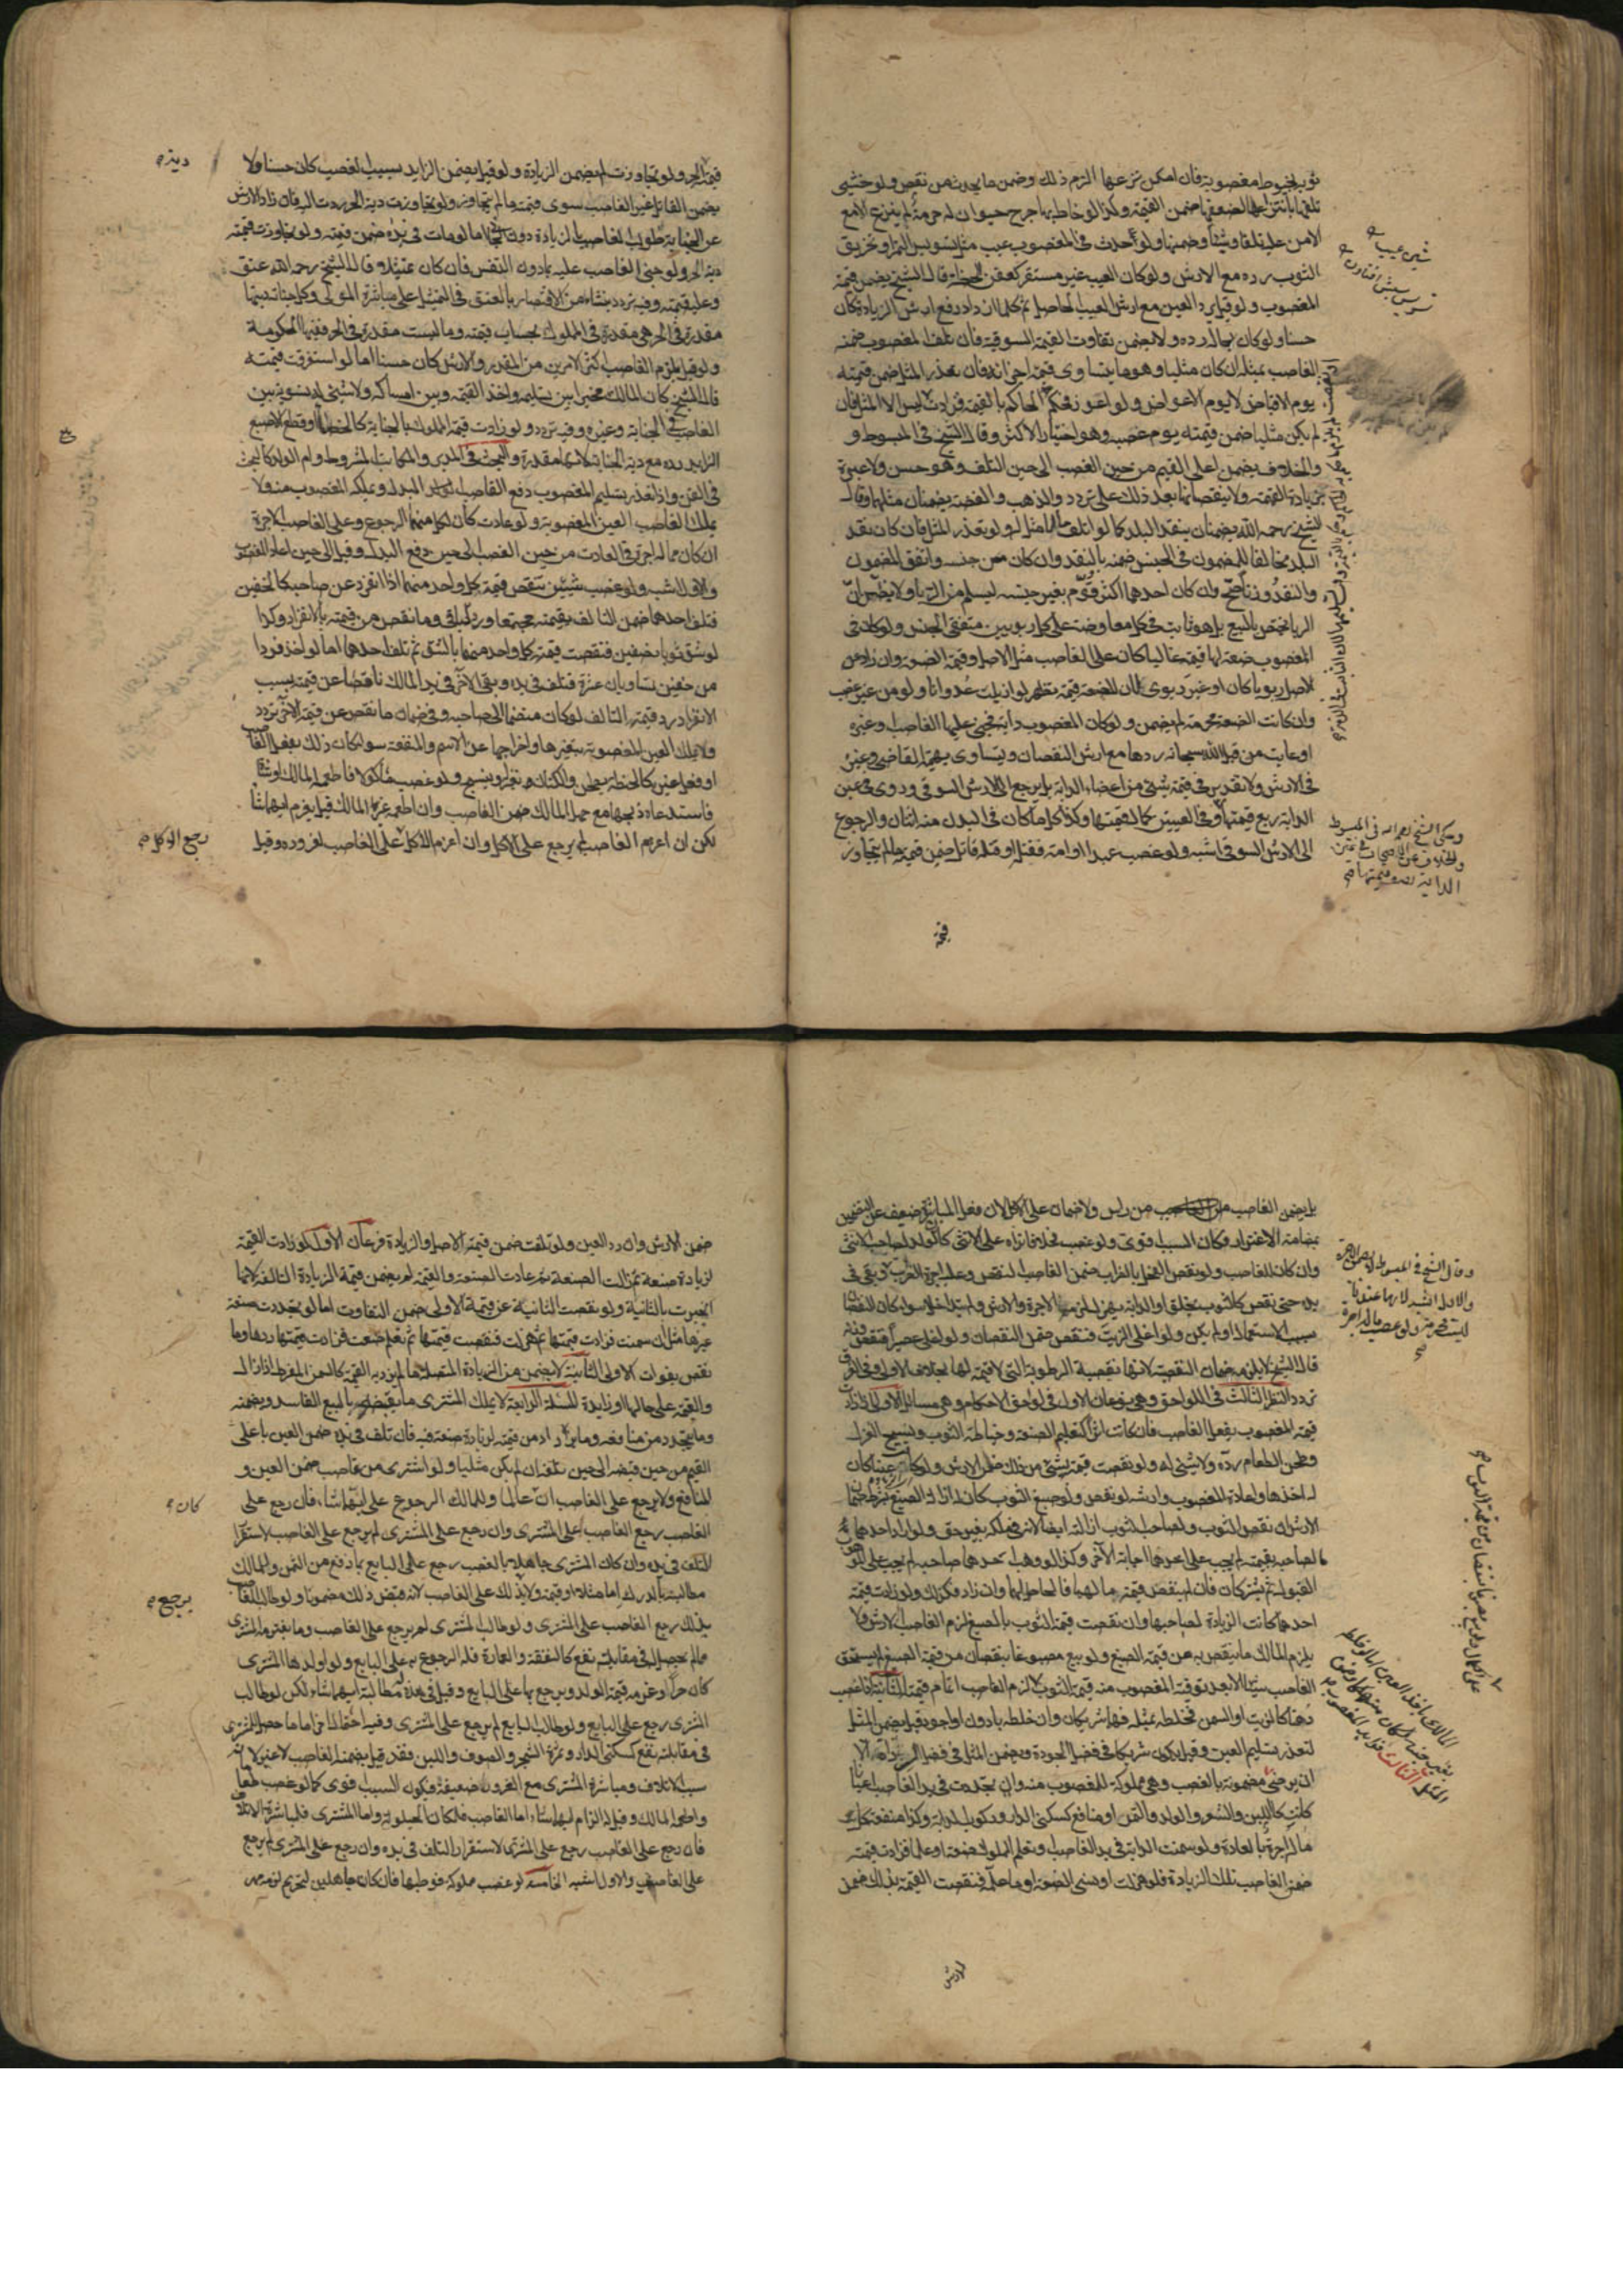 ثوبه بخيوط مغصوبة فان امكن نزعها الزم ذلك وضمن ما يحدث من نقص ولو خشي
تلفها بانتزاعها لضعفها ضمن القيمة وكذا لو خاط بها جرح حيوان له حرمة لم ينزع الا مع
الامن عليه تلفا وشينا وضمنها ولو حدث في المغصوب عيب مثل تسويس التمر او تخريق
الثوب رده مع الارش ولو كان العيب غير مستقر كعفن الحنطة قال الشيخ يضمن قيمة
المغصوب ولو قيل يرد العين مع ارش العيب الحاصل ثم كلما ازداد دفع ارش الزيادة كان
حسنا ولو كان بحاله رده ولا يضمن تفاوت القيمة السوقية فان تلف المغصوب ضمنه
الغاصب بمثله ان كان مثليا وهو ما يتساوى قيمة اجزائه فان تعذر المثل ضمن قيمته
يوم الاقباض لا يوم الاعواز ولو اعوز فحكم الحاكم بالقيمة فزادت ليس الا المثل فان
لم يكن مثليا ضمن قيمته يوم غصبه وهو اختيار الاكثر وقال الشيخ في المبسوط و
والخلاف يضمن اعلى القيم من حين الغصب الى حين التلف وهو حسن ولا عبرة
بزيادة القيمة ولا ينقصانها بعد ذلك على تردد والذهب والفضة يضمنان مثلهما وقال
الشيخ رحمه الله يضمنان بنقد البلد كما لو اتلف ما لا مثل له ولو تعذر المثل فان كان نقد
البلد مخالفا للمضمون في الجنس ضمنه بالنقد وان كان من جنسه واتفق المضمون
والنقد وزنا صح وان كان احدهما اكثر قوم بغير جنسه ليسلم من الربا ولا يظن ان
الربا يختص بالبيع بل هو ثابت في كل معاوضة على كل ربويين متفقي الجنس ولو كان في
المغصوب صنعة لها قيمة غالبا كان على الغاصب مثل الاصل وقيمة الصنعة وان زاد عن
الاصل ربويا كان او غير ربوي لان للصنعة قيمة تظهر لو ازيلت عدوانا ولو من غير غصب
وان كانت الصنعة محرمة لم يضمن ولو كان المغصوب دابة فجنى عليها الغاصب او غيره
او عابت من قبل الله سبحانه ردها مع ارش النقصان ويتساوى بهيمة القاضي وغيره
في الارش ولا تقدير في قيمة شيئ من اعضاء الدابة بل يرجع الى الارش السوقي وروي في عين
الدابة ربع قيمتها وفي العينين كمال قيمتها وكذا كل ما كان في البدن منه اثنان والرجوع
الى الارش السوقي اشبه ولو غصب عبدا او امة فقتله او قتله قاتل ضمن قيمته ما لم تتجاوز
وحكى الشيخ رحمه الله في المبسوط
والخلاف عن الاصحاب في عين
الدابة نصف قيمتها
قيمة
قيمة الحر ولو تجاوزت لم يضمن الزيادة ولو قيل يضمن الزايد بسبب الغصب كان حسنا ولا
دية
يضمن القاتل غير الغاصب سوى قيمته ما لم تتجاوز ولو تجاوزت دية الحر ردت اليه فان زاد الارش
عن الجناية طولب الغاصب بالزيادة دون الجاني اما لو مات في يده ضمن قيمته ولو تجاوزت قيمته
دية الحر ولو جنى الغاصب عليه بما دون النفس فان كان تمثيلا قال الشيخ رحمه الله عتق
وعليه قيمته وفيه تردد ينشا من الاقتصار بالعتق في التمثيل على مباشرة المولى وكل جناية ديتها
مقدرة في الحر فهي مقدرة في المملوك بحساب قيمته وما ليست مقدرة في الحر ففيها الحكومة
ولو قيل يلزم الغاصب اكثر الامرين من المقدر والارش كان حسنا اما لو استغرقت قيمته
قال الشيخ كان المالك مخيرا بين تسليمه واخذ القيمة وبين امساكه ولا شيئ له تسوية بين
الغاصب في الجناية وغيره وفيه تردد ولو زادت قيمة المملوك بالجناية كالخصاء او قطع الاصبع
الزايد رده مع دية الجناية لانها مقدرة والبحث في المدبر والمكاتب المشروط وام الولد كالبحث
في القن واذا تعذر تسليم المغصوب دفع الغاصب البدل ويملكه المغصوب منه ولا
يملك الغاصب العين المغصوبة ولو عادت كان لكل منهما الرجوع وعلى الغاصب الاجرة
ان كان مما له اجرة في العادة من حين الغصب الى حين دفع البدل وقيل الى حين اعادة المغصوب
والاول اشبه ولو غصب شيئين تنقص قيمة كل واحد منهما اذا انفرد عن صاحبه كالخفين
فتلف احدهما ضمن التالف بقيمته مجتمعا ورد الباقي وما نقص من قيمته بالانفراد وكذا
لو شق ثوبا نصفين فنقصت قيمة كل واحد منهما بالشق ثم تلف احدهما اما لو اخذ فردا
من خفين يساويان عشرة فتلف في يده وبقي الاخر في يد المالك ناقصا عن قيمته بسبب
الانفراد رد قيمة التالف لو كان منضما الى صاحبه وفي ضمان ما نقص عن قيمة الاخر تردد
ولا تملك العين المغصوبة بتغيرها واخراجها عن الاسم والمنفعة سواء كان ذلك بفعل الغاصب
او فعل غيره كالحنطة يطحن والكتان يغزل وينسج ولو غصب مأكولا فاطعمه المالك او شاة
فاستدعاه ذبحها مع جهل المالك ضمن الغاصب وان اطعمه غير المالك قيل يغرم ايهما شاء
لكن ان اغرم الغاصب لم يرجع على الاكل وان اغرم الاكل على الغاصب لغروره وقيل
رجع الاكل
بل يضمن الغاصب من راس ولا ضمان على الاكل لان فعل المباشر ضعيف عن التضمين
بمضامة الاغترار فكان السبب اقوى ولو غصب فحلا فانزاه على الانثى كان الولد لصاحب الانثى
وان كان للغاصب ولو نقص الفحل بالضراب ضمن الغاصب النقص وعليه اجرة الضراب وبقي في
وقال الشيخ في المبسوط لا يضمن الاجرة
والاول اشبه لانها عندنا
ليست محرمة ولو غصب ما له اجرة
يده حتى نقص كالثوب يخلق او الدابة تهزل لزمه الاجرة والارش ولم يتداخلا سواء كان النقصان
بسبب الاستعمال او لم يكن ولو اغلى الزيت فنقص ضمن النقصان ولو اغلى عصيرا فنقص وزنه
قال الشيخ لا يلزمه ضمان النقيصة لانها نقيصة الرطوبة التي لا قيمة لها بخلاف الاولى وفي الفرق
تردد النظر الثالث في اللواحق وهي نوعان الاول في لواحق الاحكام وهي مسائل الاولى اذا زادت
قيمة المغصوب بفعل الغاصب فان كانت اثرا كتعليم الصنعة وخياطة الثوب ونسيج الغزل
وطحن الطعام رده ولا شيئ له ولو نقصت قيمته بشيئ من ذلك ضمن الارش ولو كانت عينا كان
له اخذها واعادة المغصوب وارشه لو نقص ولو صبغ الثوب كان له ازالة الصبغ بشرط ضمان
الارش ان نقص الثوب ولصاحب الثوب ازالته ايضا لانه في ملكه بغير حق ولو اراد احدهما ما
لصاحبه بقيمته لم يجب على احدهما اجابة الاخر وكذا لو وهب احدهما صاحبه لم يجب على الموهوب
القبول ثم يشتركان فان لم ينقص قيمة مالهما فالحاصل لهما وان زاد فكذلك ولو زادت قيمة
احدهما كانت الزيادة لصاحبها وان نقصت قيمة الثوب بالصبغ لزم الغاصب الارش ولا
يلزم المالك ما ينقص به عن قيمة الصبغ ولو بيع مصبوغا بنقصان من قيمة الصبغ لم يستحق
الغاصب شيئا الا بعد توفية المغصوب منه قيمة الثوب لزم الغاصب اتمام قيمته الثانية اذا غصب
دهنا كالزيت او السمن فخلطه بمثله فهما شريكان وان خلطه بادون او اجود قيل يضمن المثل
لتعذر تسليم العين وقيل يكون شريكا في فضل الجودة ويضمن المثل في فضل الرداءة الا
ان يرضى مضمونة بالغصب وهي مملوكة للمغصوب منه وان تجددت في يد الغاصب اعيانا
كانت كاللبن والشعر والولد والثمر او منافع كسكنى الدار وركوب الدابة وكذا منفعة كل
ما له اجرة بالعادة ولو سمنت الدابة في يد الغاصب او تعلم المملوك صنعة او علما فزادت قيمته
ضمن الغاصب تلك الزيادة فلو هزلت او نسي الصنعة او ما علمه فنقصت القيمة لذلك ضمن
الارش
ضمن الارش وان رد العين ولو تلفت ضمن قيمة الاصل والزيادة فرعان الاول لو زادت القيمة
لزيادة صنعة ثم زالت الصنعة ثم عادت الصنعة والقيمة لم يضمن قيمة الزيادة التالفة لانها
انجبرت بالثانية ولو نقصت الثانية عن قيمة الاولى ضمن التفاوت اما لو تجددت صفة
غيرها مثل ان سمنت فزادت قيمتها ثم هزلت فنقصت قيمتها ثم تعلم صنعة فزادت قيمتها ردها وما
نقص بفوات الاولى الثانية لا يضمن من الزيادة المتصلة ما لم يزد به القيمة كالسمن المفرط اذا زال
والقيمة على حالها او زايدة المسئلة الرابعة لا يملك المشتري ما يقبضه بالبيع الفاسد ويضمنه
وما يتجدد من منافعه وما يزداد من قيمته لزيادة صنعة فيه فان تلف في يده ضمن العين باعلى
القيم من حين قبضه الى حين تلفه ان لم يكن مثليا ولو اشترى من غاصب ضمن العين و
المنافع ولا يرجع على الغاصب ان عالما وللمالك الرجوع على ايهما شاء فان رجع على
كان
الغاصب رجع الغاصب على المشتري وان رجع على المشتري لم يرجع على الغاصب لاستقرار
التلف في يده وان كان المشتري جاهلا بالغصب رجع على البايع بما دفع من الثمن وللمالك
مطالبته بالدرك اما مثلا او قيمة ولا بذلك على الغاصب لانه قبض ذلك مضمونا ولو طالب الغاصب
يرجع
بذلك رجع الغاصب على المشتري ولو طالب المشتري لم يرجع على الغاصب وما يغترمه المشتري
مما لم يحصل له في مقابلته نفع كالنفقة والعمارة فله الرجوع به على البايع ولو اولدها المشتري
كان حرا وغرم قيمة الولد ويرجع بها على البايع وقيل في هذه له مطالبة ايهما شاء لكن لو طالب
المشتري رجع على البايع ولو طالب البايع لم يرجع على المشتري وفيه احتمال اخر اما ما حصل للمشتري
في مقابلته نفع كسكنى الدار وثمرة الشجر والصوف واللبن فقد قيل يضمنه الغاصب لا غير لانه
سبب الاتلاف ومباشرة المشتري مع الغرور ضعيفة فيكون السبب اقوى كما لو غصب طعاما
واطعمه المالك وقيل له الزام ايهما شاء اما الغاصب فلمكان الحيلولة واما المشتري فلمباشرة الاتلاف
فان رجع على الغاصب رجع على المشتري لاستقرار التلف في يده وان رجع على المشتري لم يرجع
على الغاصب والاول اشبه الخامسة لو غصب مملوكة فوطئها فان كانا جاهلين لتحريم لزمه مهر